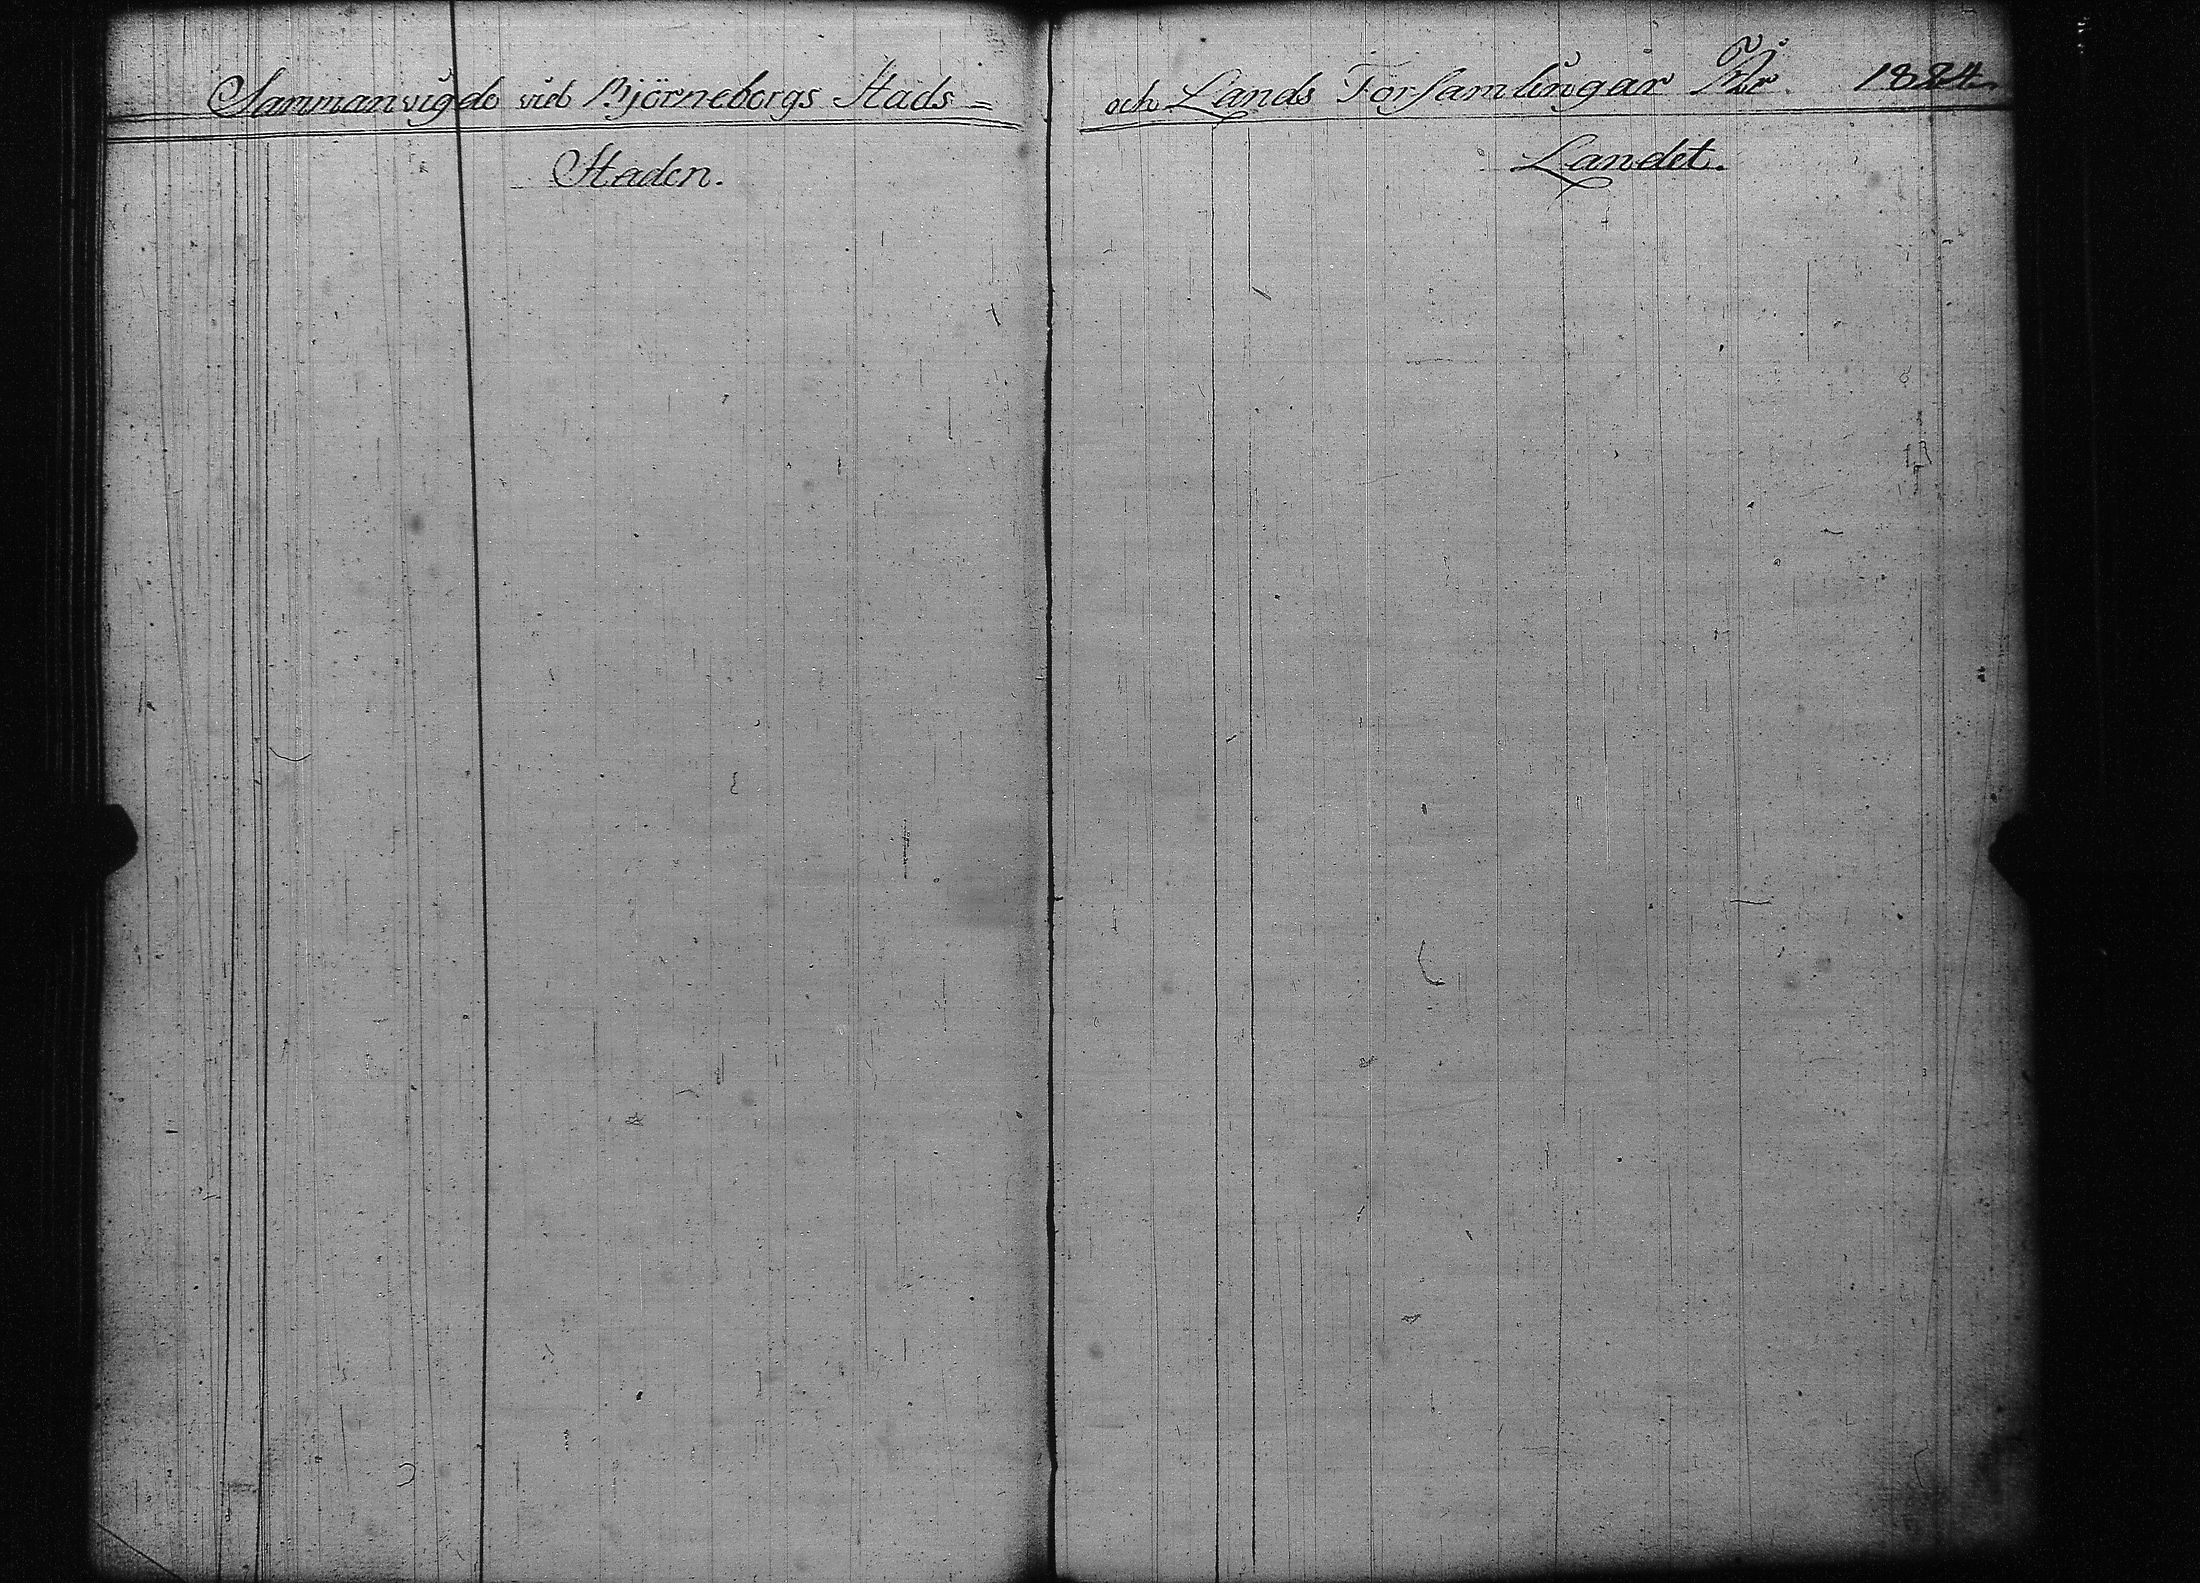 Sammanvigde vid Björneborgs Stads=
Staden.
och Lands Församlingar År 1824.
Landet.